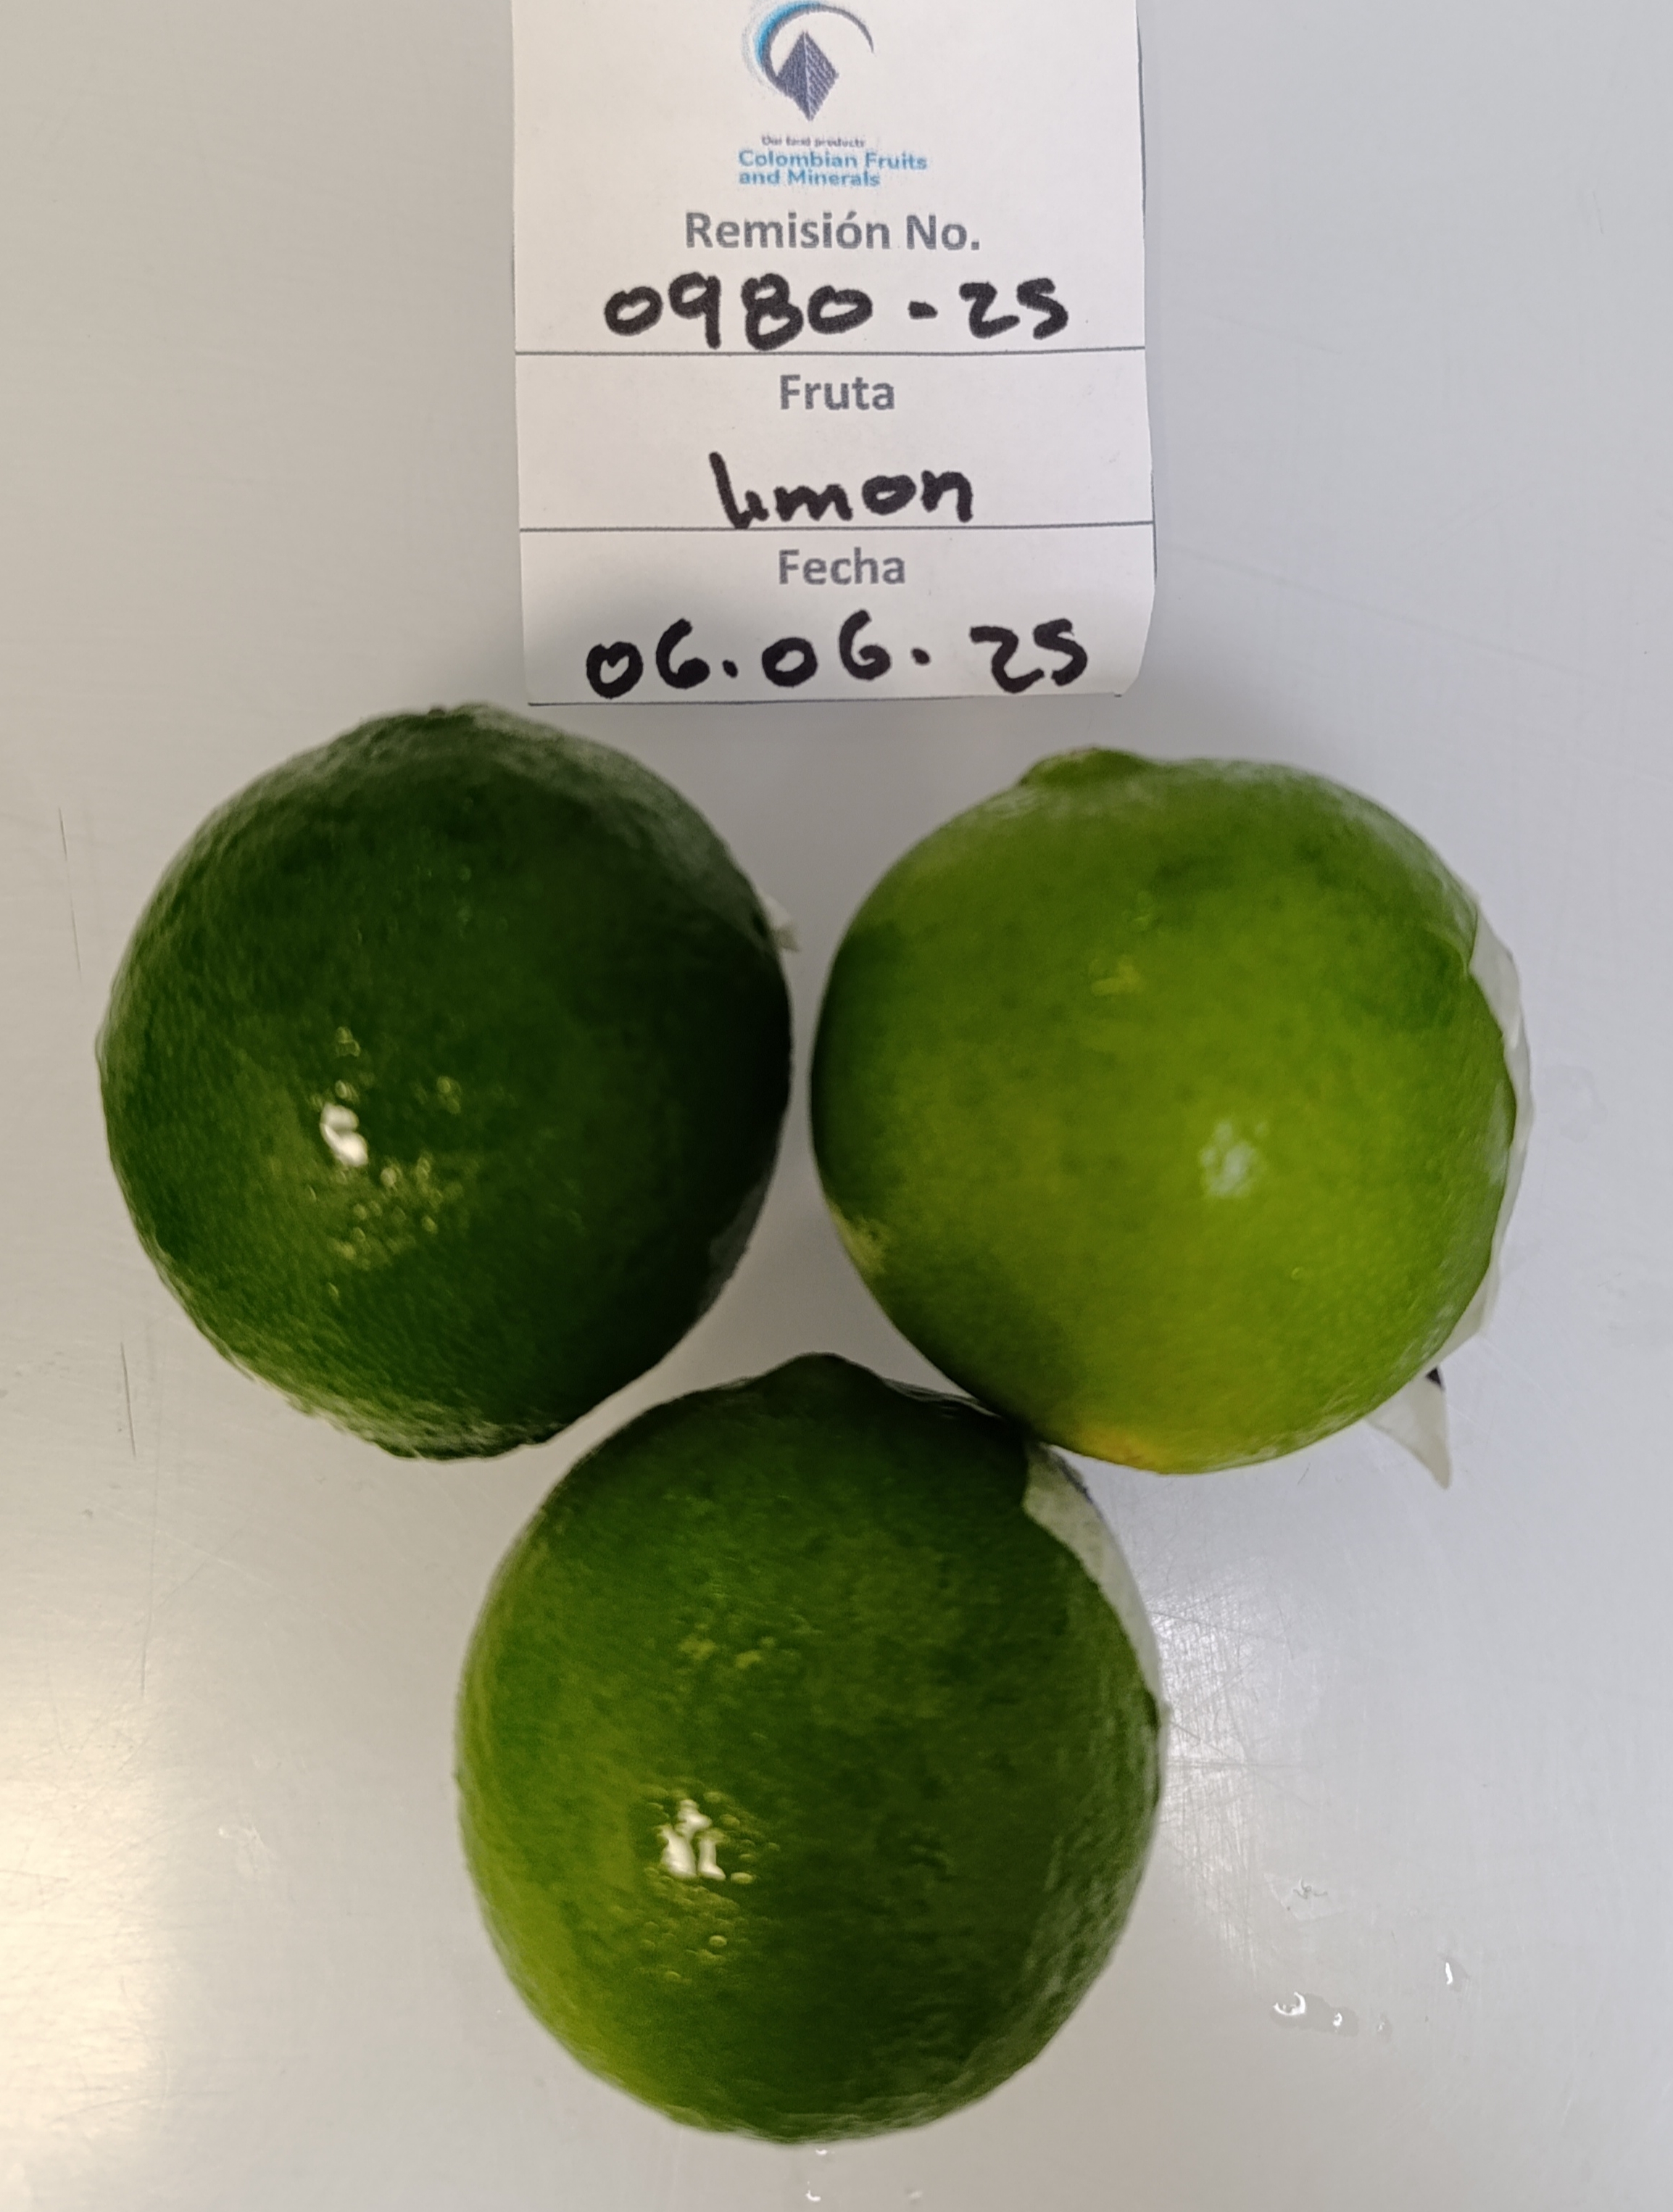 Our food products
Colombian Fruits
and Minerals
Remisión No.
0980-25
Fruta
limon
Fecha
06.06.25